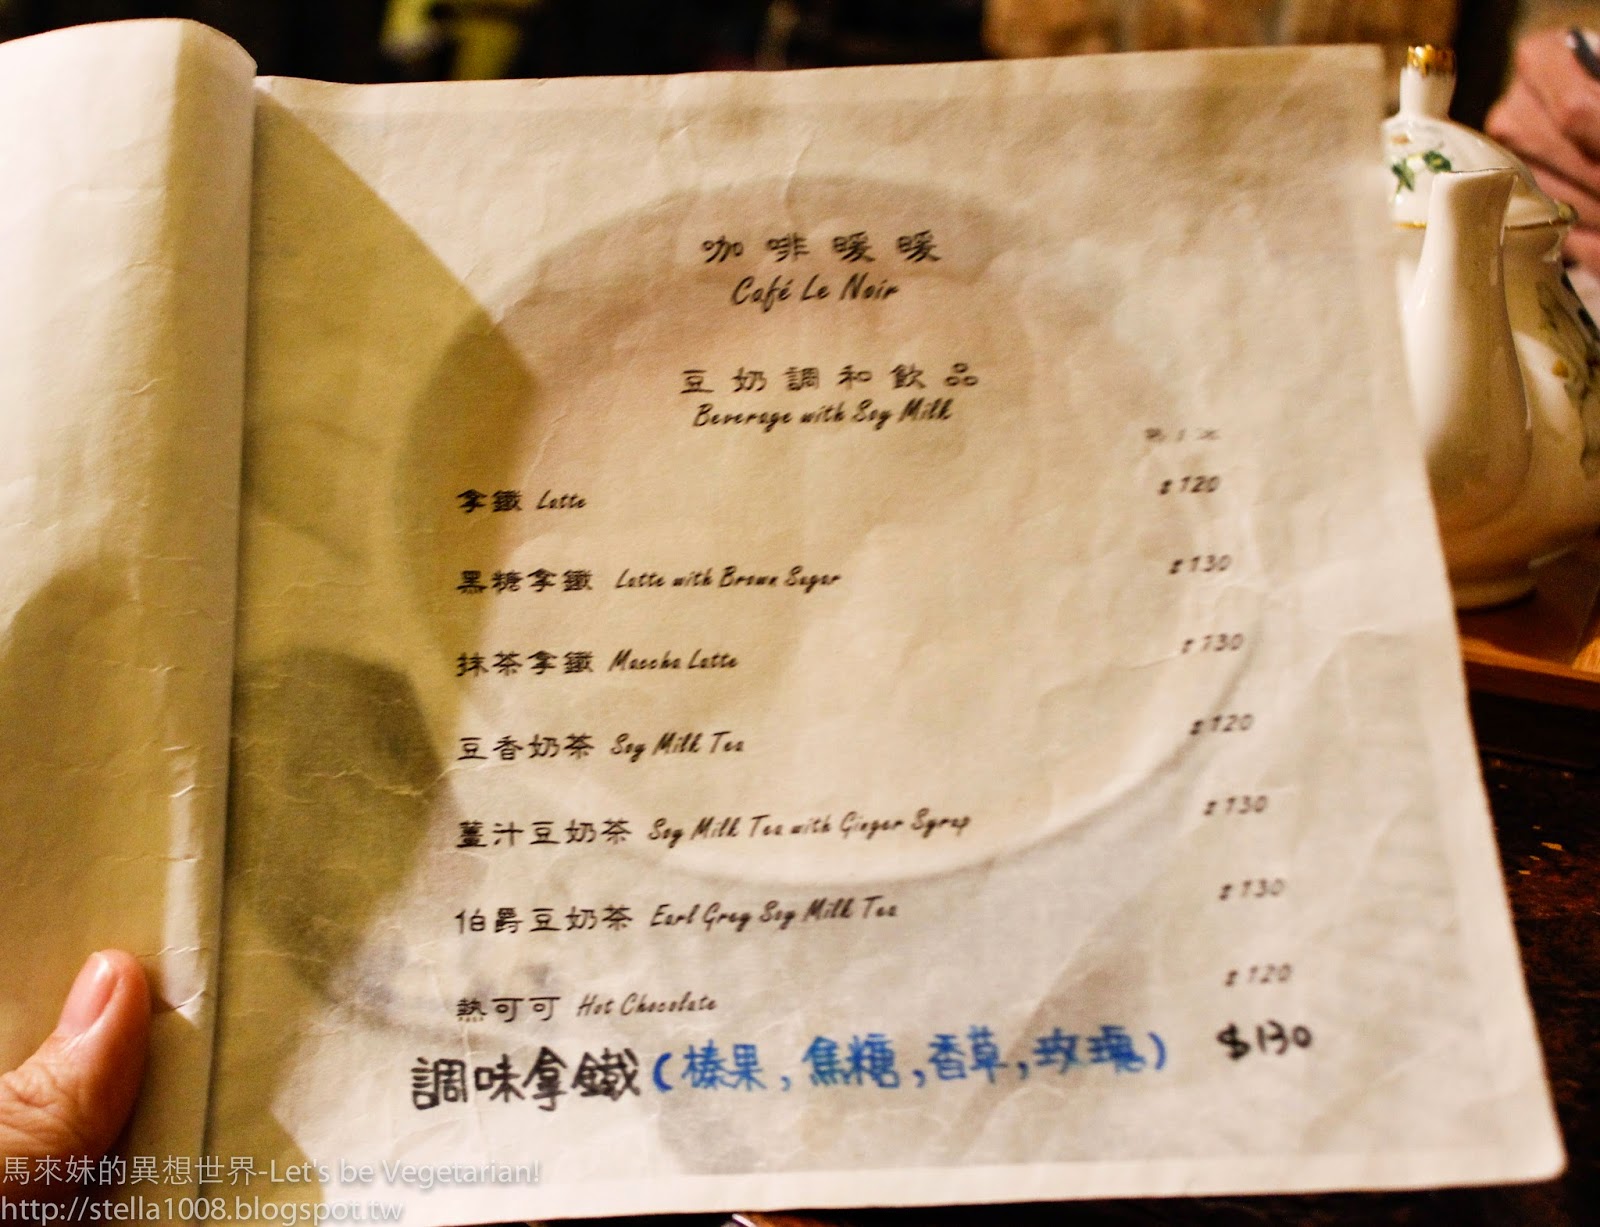 咖啡暖暖
Café Le Noir
豆奶調和飲品
Beverage with Soy Milk
拿鐵 Latte $120
黑糖拿鐵 Latte with Brown Sugar $130
抹茶拿鐵 Maccha Latte $130
豆香奶茶 Soy Milk Tea $120
薑汁豆奶茶 Soy Milk Tea with Ginger Syrup $130
伯爵豆奶茶 Earl Grey Soy Milk Tea $130
熱可可 Hot Chocolate $120
調味拿鐵(榛果,焦糖,香草,玫瑰) $130
馬來妹的異想世界-Let's be Vegetarian!
http://stella1008.blogspot.tw